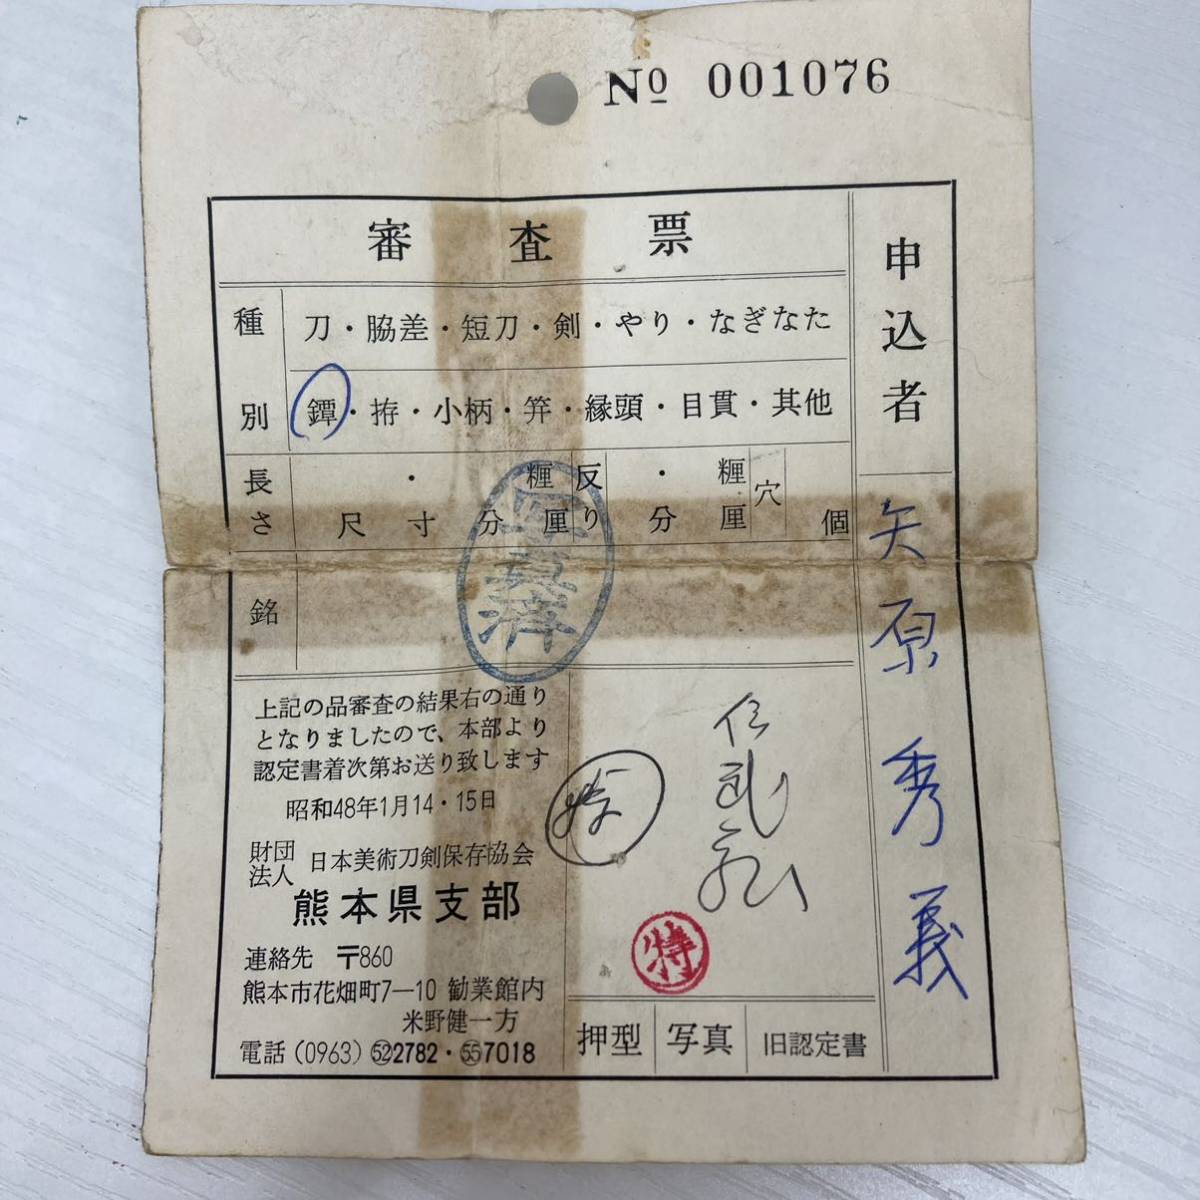 No 001076
審査票
申込者
矢原秀義
種別
刀・脇差・短刀・剣・やり・なぎなた
鐔・拵・小柄・笄・縁頭・目貫・其他
長さ
・糎
尺寸分厘
反り
・糎
分厘
穴
個
写真済
銘
上記の品審査の結果右の通り
となりましたので、本部より
認定書着次第お送り致します
昭和48年1月14・15日
財団法人 日本美術刀剣保存協会
熊本県支部
連絡先 〒860
熊本市花畑町7—10 勧業館内
米野健一方
電話(0963)㊾2782・㊺7018
特
押型
写真
旧認定書